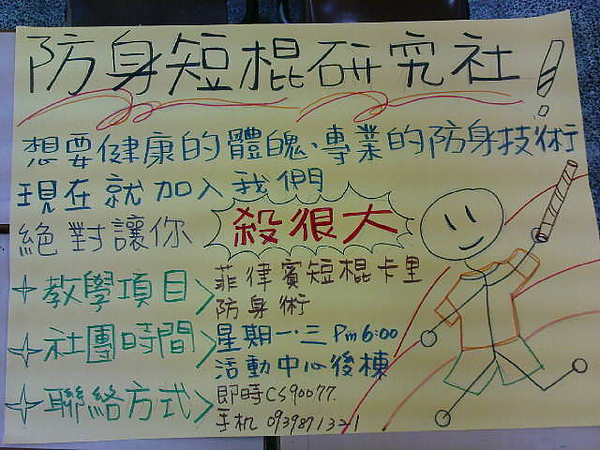 防身短棍研究社!
想要健康的體魄、專業的防身技術
現在就加入我們
絕對讓你 殺很大
教學項目 菲律賓短棍卡里
防身術
社團時間 星期一.三 Pm6:00
活動中心後棟
聯絡方式 即時CS90077
手机 0939871321